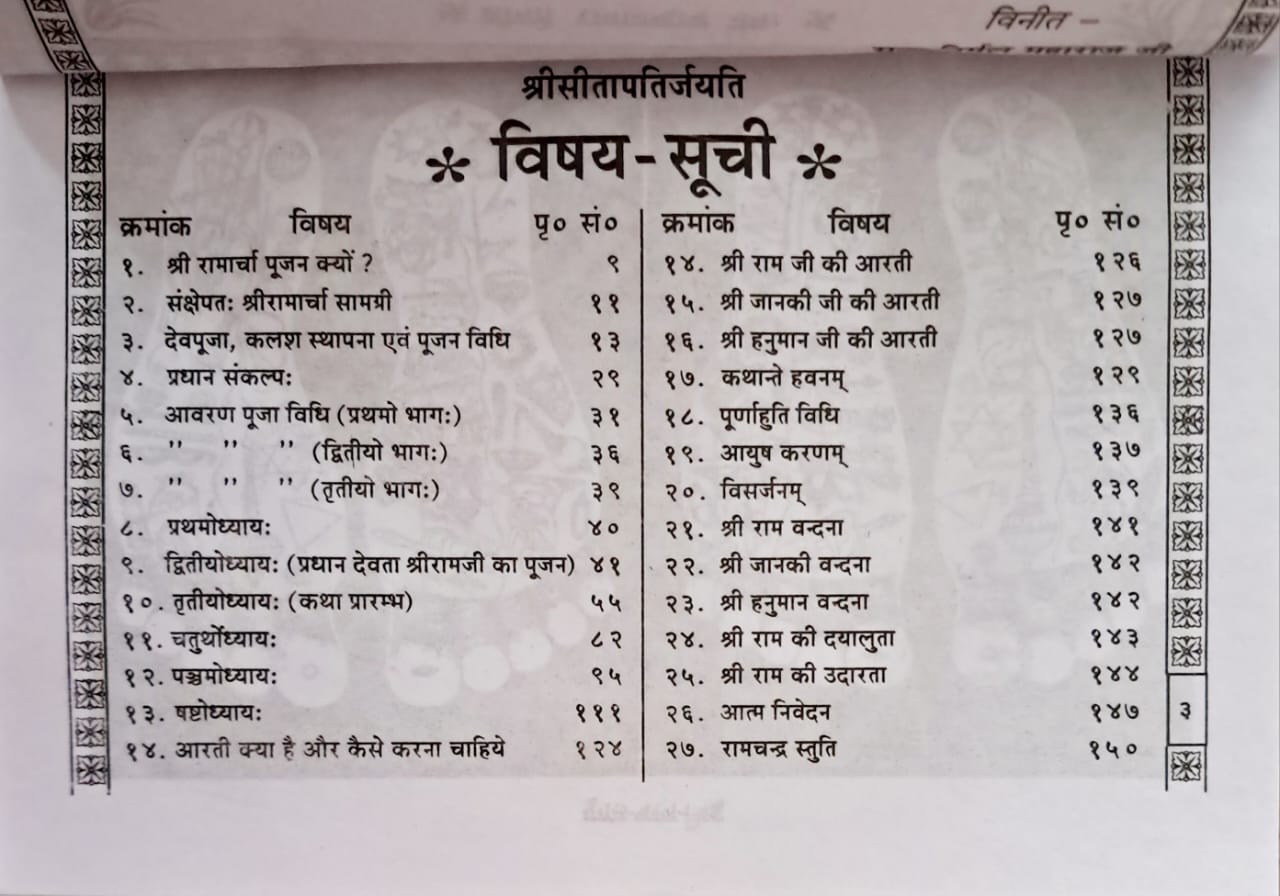 विनीत –
श्रीसीतापतिर्जयति
* विषय - सूची *
क्रमांक विषय पृ० सं०
१. श्री रामार्चा पूजन क्यों ? ९
२. संक्षेपतः श्रीरामार्चा सामग्री ११
३. देवपूजा, कलश स्थापना एवं पूजन विधि १३
४. प्रधान संकल्पः २९
५. आवरण पूजा विधि (प्रथमो भागः) ३१
६. " " " (द्वितीयो भागः) ३६
७. " " " (तृतीयो भागः) ३९
८. प्रथमोध्यायः ४०
९. द्वितीयोध्यायः (प्रधान देवता श्रीरामजी का पूजन) ४१
१०. तृतीयोध्यायः (कथा प्रारम्भ) ५५
११. चतुर्थोध्यायः ८२
१२. पञ्चमोध्यायः ९५
१३. षष्टोध्यायः १११
१४. आरती क्या है और कैसे करना चाहिये १२४
क्रमांक विषय पृ० सं०
१४. श्री राम जी की आरती १२६
१५. श्री जानकी जी की आरती १२७
१६. श्री हनुमान जी की आरती १२७
१७. कथान्ते हवनम् १२९
१८. पूर्णाहुति विधि १३६
१९. आयुष करणम् १३७
२०. विसर्जनम् १३९
२१. श्री राम वन्दना १४१
२२. श्री जानकी वन्दना १४२
२३. श्री हनुमान वन्दना १४२
२४. श्री राम की दयालुता १४३
२५. श्री राम की उदारता १४४
२६. आत्म निवेदन १४७
२७. रामचन्द्र स्तुति १५०
३